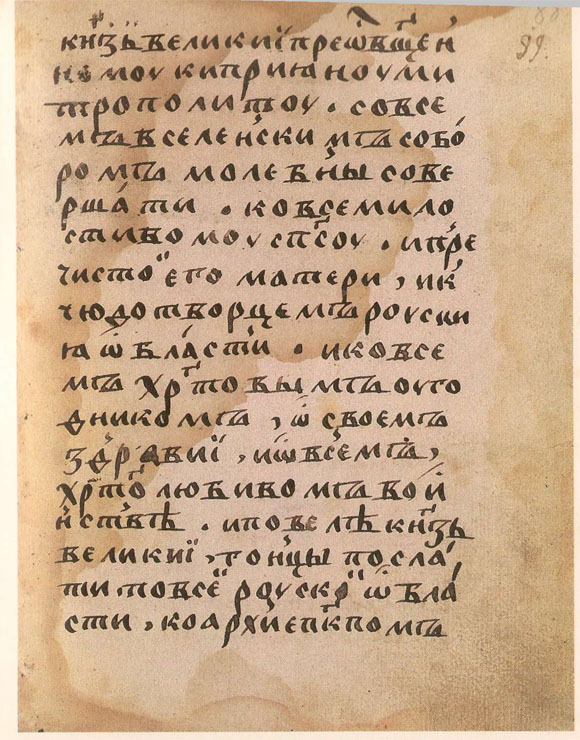 99.
кнѧзь великиї преѡсв҃щен
номоу киприꙗноу ми
трополитоу. со все
мъ вселенскимъ собо
ромъ молебны сове
ршати. ко всемило
стивомоу сп҃соу. и пре
чистоⷤ его матери, и к
чюдотворцемъ роуски
ꙗ ѡбласти. и ко все
мъ хрⷭ҇товымъ оуго
дникомъ, ѡ своемъ
здравиї, и ѡ всемъ,
хрⷭ҇толюбивомъ вои
нствѣ. и повелѣ кнѧзь
великиї, гонцы посла
ти по всеи роускои ѡбла
сти, ко архиеп҃кпомъ